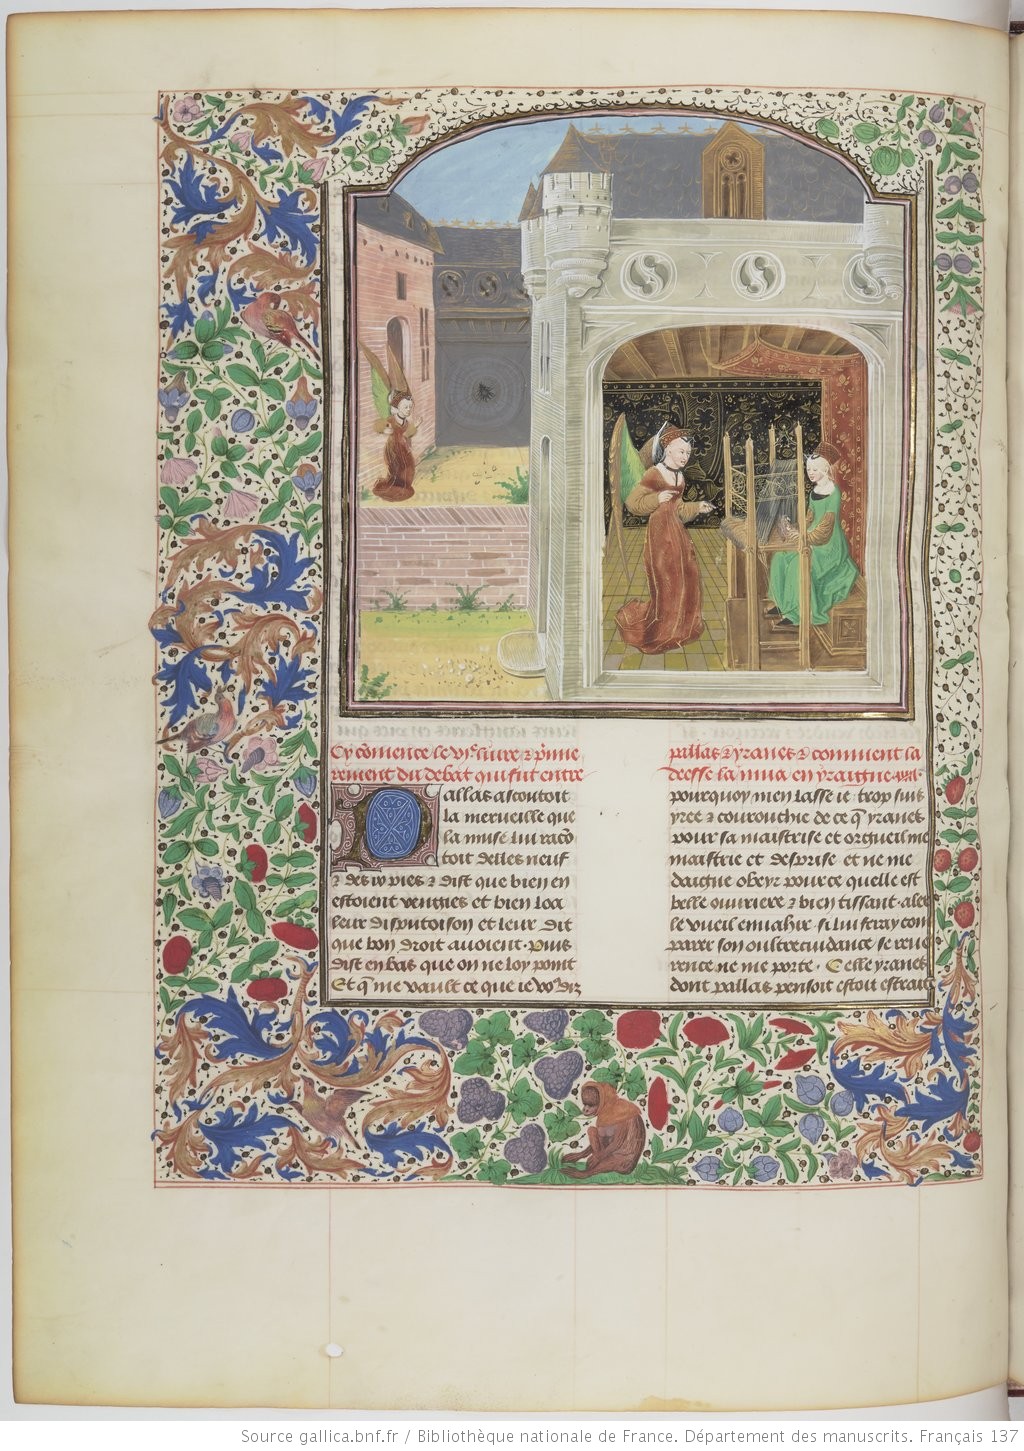 Cy cõmence le vi.e liure & p̃mie
rement du debat qui fut entre
Pallas ascoutoit
la merueille que
la muse lui racõ
toit delles neuf
& des ix pies & dist que bien en
estoient vengies et bien loa
leur disputoison et leur dit
que bon droit auoient. Puis
dist en bas que on ne loy point
Et q̃ me vault ce que ie
pallas & yranes & comment la
deesse la mua en yraigne
pourquoy men lasse ie trop suis
yree & courouchie de ce q̃ yranes
pour sa maistrise et orgueil me
maistrie et desprise et ne me
daigne obeyr pour ce quelle est
belle ouuriere & bien tissant. aler
le vueil enuahir. si lui feray com
parer son oultrecuidance se reue
rence ne me porte. Celle yranes
dont pallas pensoit estoit estraite
Source gallica.bnf.fr / Bibliothèque nationale de France. Département des manuscrits. Français 137